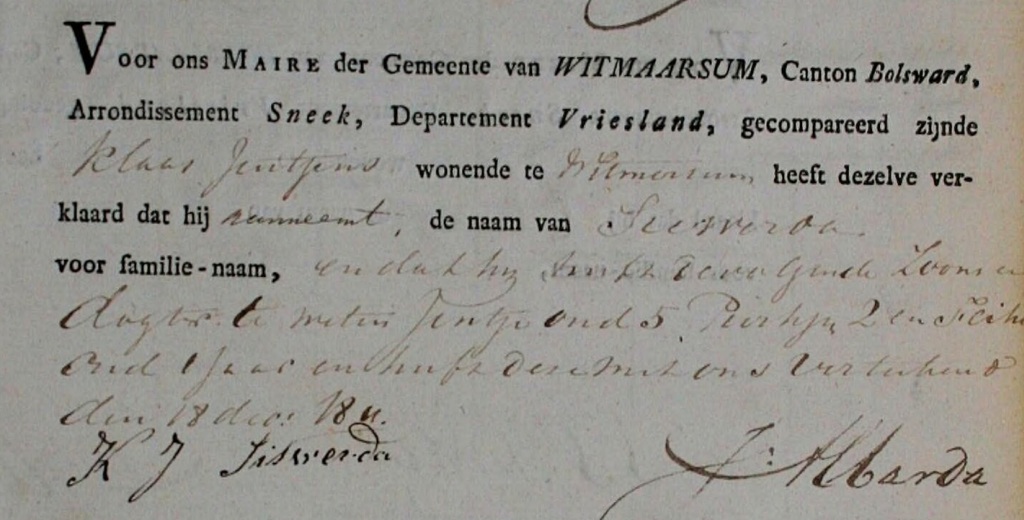 Voor ons MAIRE der Gemeente van WITMAARSUM, Canton Bolsward,
Arrondissement Sneek, Departement Vriesland, gecompareerd zijnde
Klaas Jentjens wonende te Witmarsum, heeft dezelve ver-
klaard dat hij aanneemt, de naam van
voor familie-naam, en dat hij heeft de volgende Zoons en
dogtr. te weten Jentje oud 5, 2 en
oud 1 Jaar en heeft dese met ons vertekend
den 18 decr. 1811.
K J Siswerda
J: Albarda